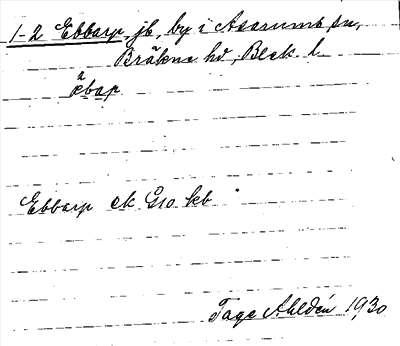 1-2 Ebbarp, jb, by i Asarums sn,
Bräkne hd, Blek. l.
ä̀bap
Ebbarp ek G10 kb
Tage Ahldén 1930